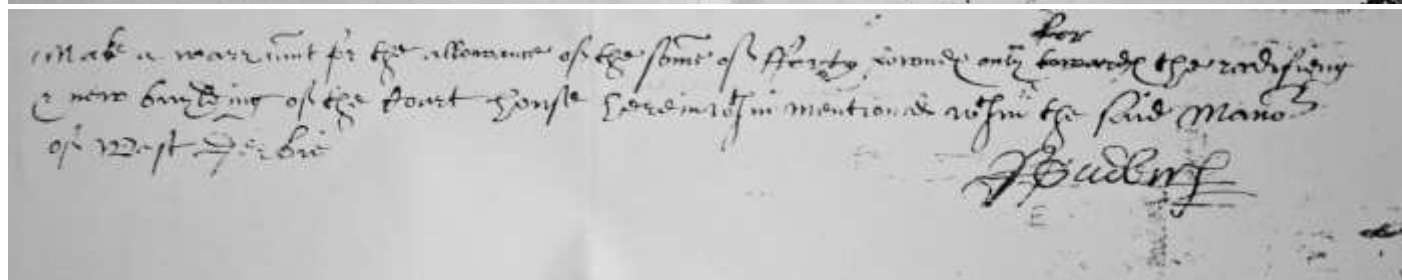 for
Make a warraunt for the allowance of the some of fforty pounde only towarde the reedifieng
& new buylding of the Court house hereinwthin mentioned wthin the said Mano
of West Derbie